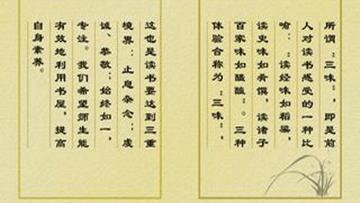 所谓“三味”，即是前
人对读书感受的一种比
喻：“读经味如稻粱，
读史味如肴馔，读诸子
百家味如醯醢”。三种
体验合称为“三味”，
这也是读书要达到三重
境界：止息杂念；虔
诚、恭敬；始终如一，
专注。我们希望师生能
有效地利用书屋，提高
自身素养。